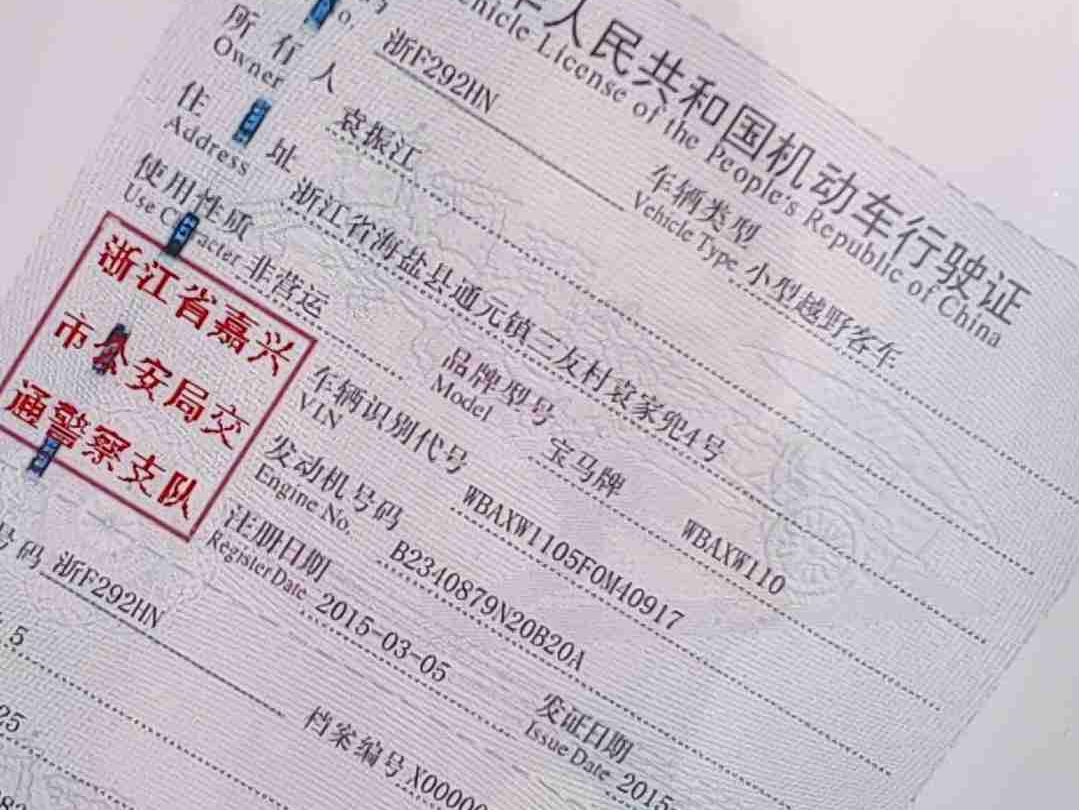 华人民共和国机动车行驶证
Vehicle License of the People's Republic of China
浙F292HN
车辆类型 小型越野客车
Vehicle Type
所有人 袁振江
Owner
住址 浙江省海盐县通元镇三友村袁家兜4号
Address
使用性质 非营运
Use Character
品牌型号 宝马牌 WBAXW110
Model
浙江省嘉兴
市公安局交
通警察支队
车辆识别代号 WBAXW1105F0M40917
VIN
发动机号码 B2340879N20B20A
Engine No.
注册日期 2015-03-05
Register Date
发证日期 2015-
Issue Date
号码 浙F292HN
档案编号 X00000
5